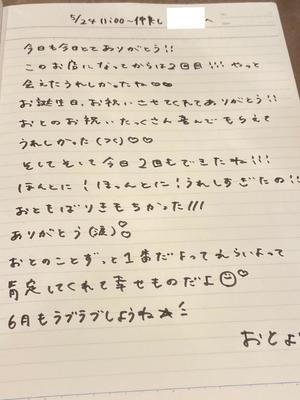 5/24 11:00〜仲良し　　　へ
今日も今日とてありがとう!!
このお店になってからは2回目!!! やっと
会えたうれしかったね♡♡
お誕生日、お祝いさせてくれてありがとう!!
おとのお祝いたっくさん喜んでもらえて
うれしかった(つく)♡♡
そしてそして今日2回もできたね!!!
ほんとに!ほんっとに!うれしすぎたの!!
おともばりきもちかった!!!
ありがとう(涙)
おとのことずっと1番だよってえらいよって
肯定してくれて幸せものだよ☺♡
6月もラブラブしようね☆
おとより